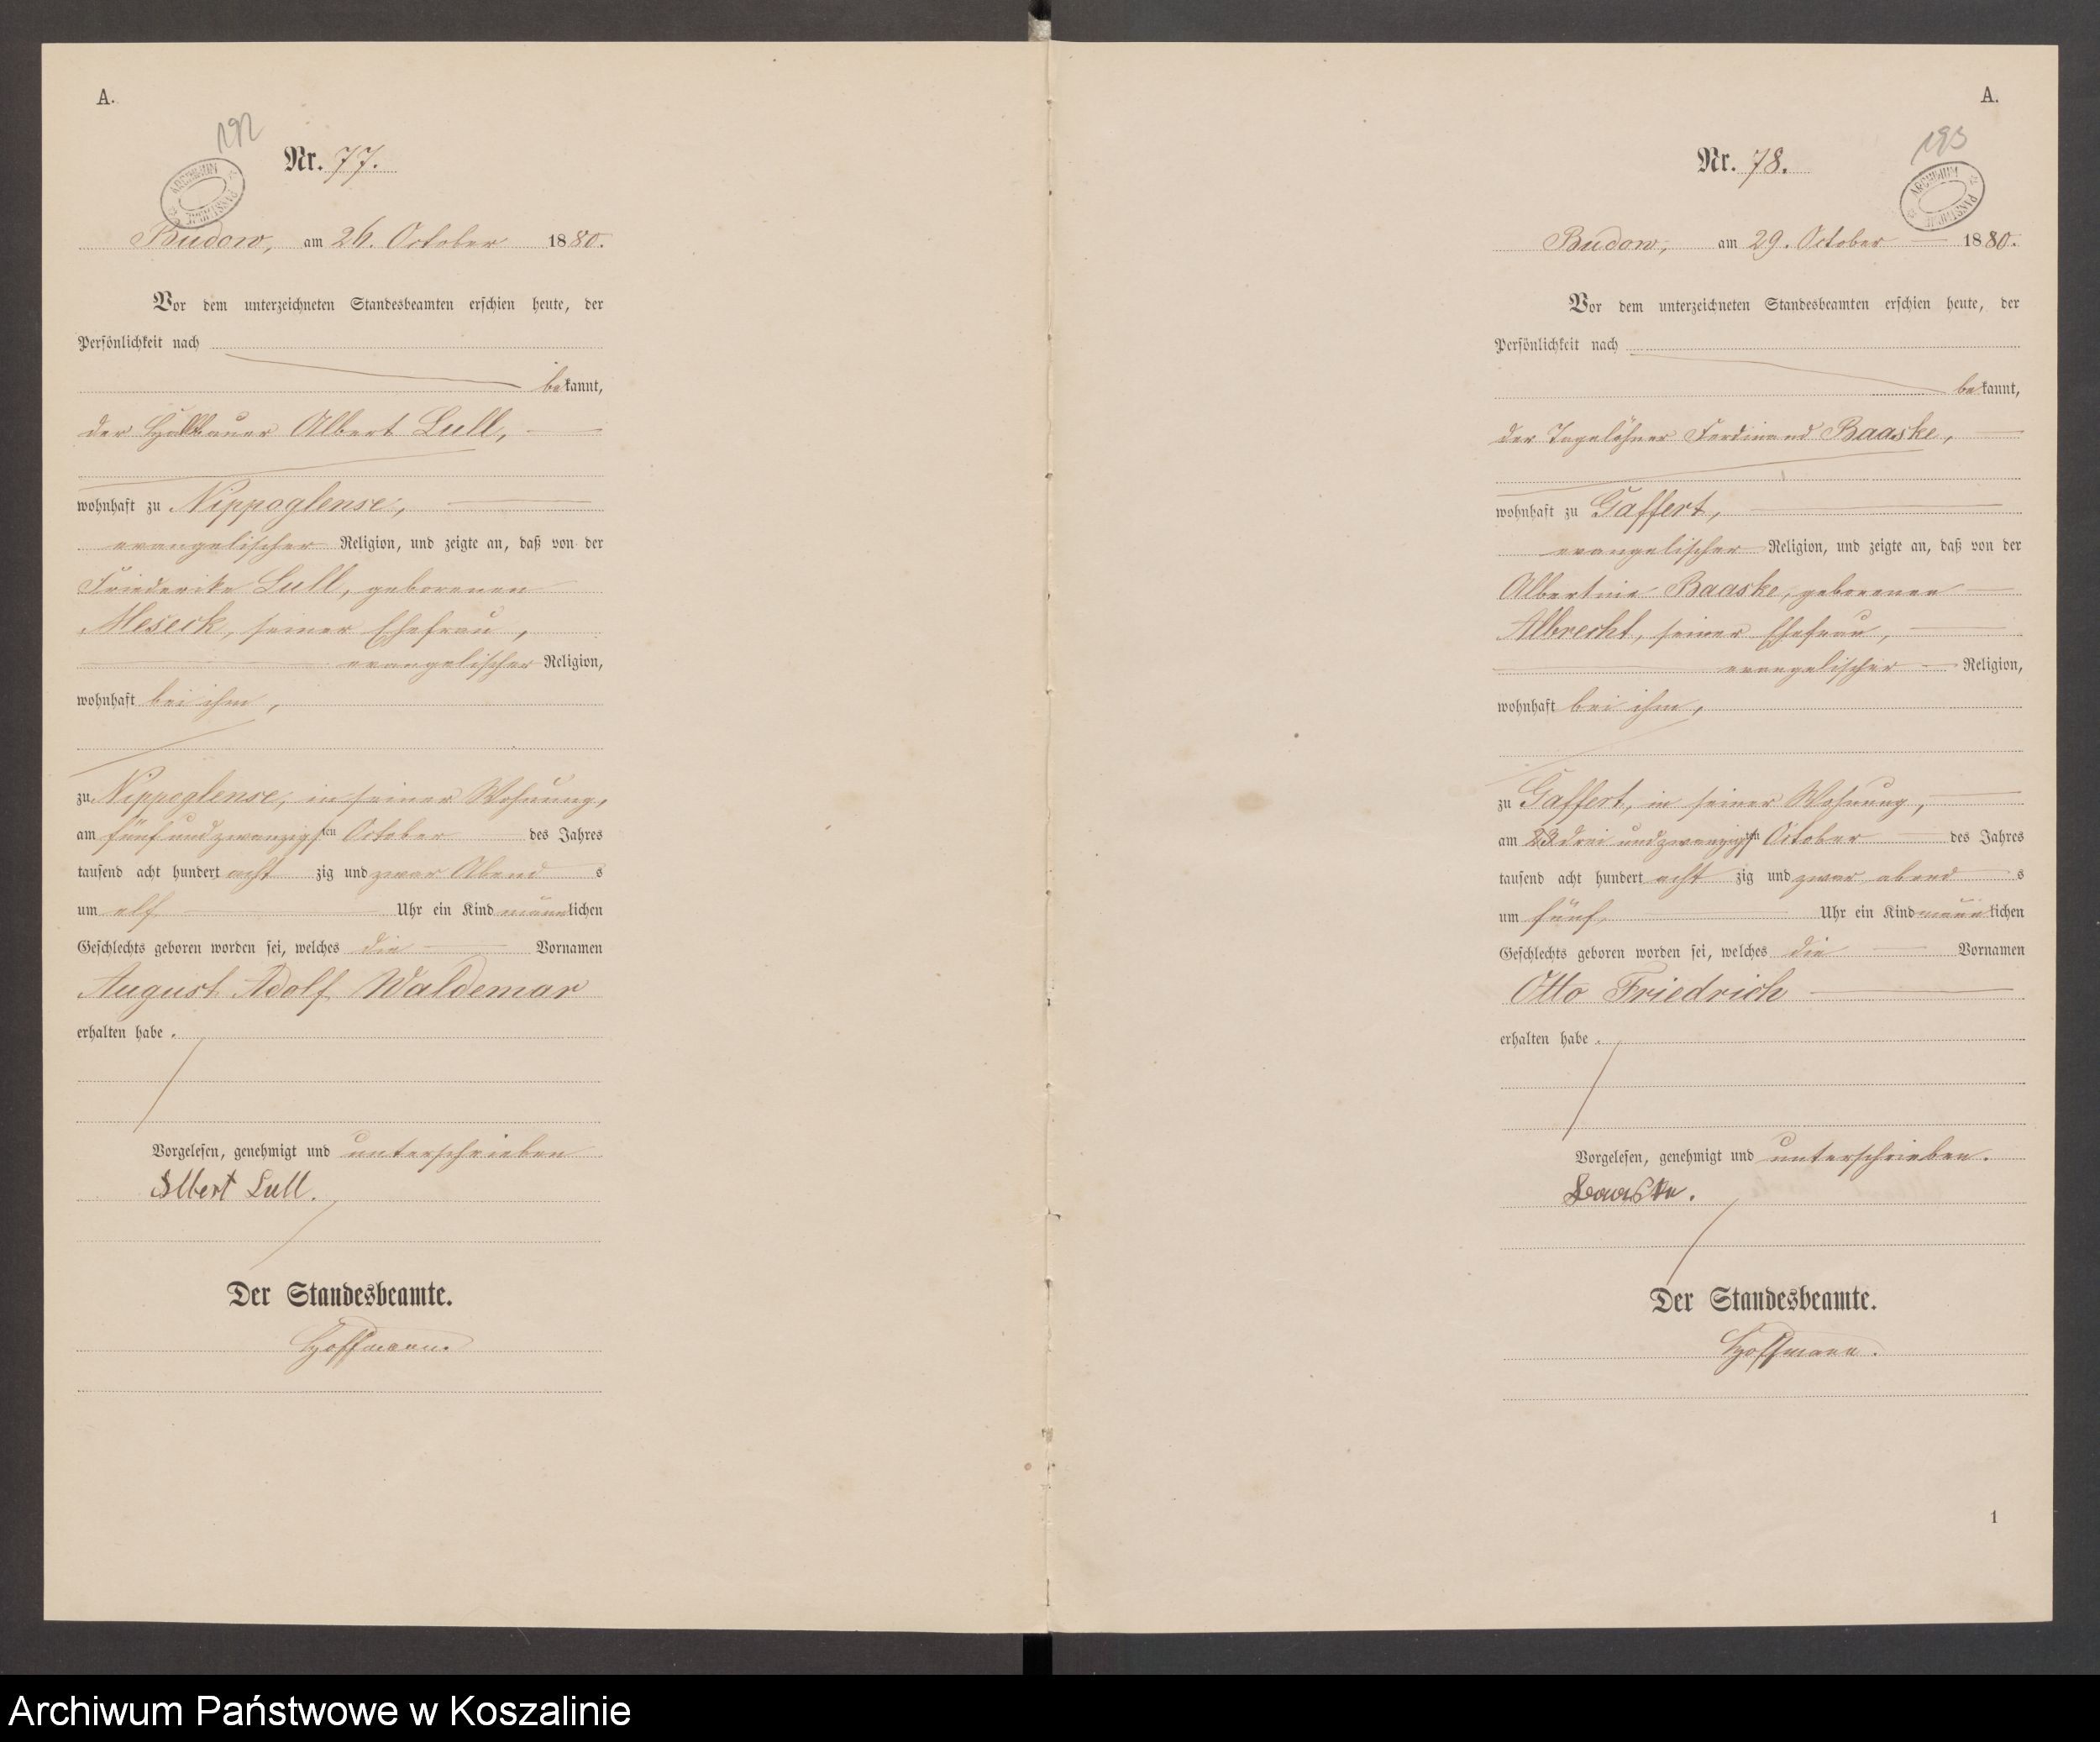 A.
192
Nr. 77.
ARCHIWUM PAŃSTWOWE
Budow, am 26. October 1880.
Vor dem unterzeichneten Standesbeamten erschien heute, der
Persönlichkeit nach
bekannt,
der Halbbauer Albert Lull,
wohnhaft zu Nippoglense,
evangelischer Religion, und zeigte an, daß von der
Friederike Lull, geborenen
Meseck, seiner Ehefrau,
evangelischer Religion,
wohnhaft bei ihm,
zu Nippoglense, in seiner Wohnung,
am fünf und zwanzigsten October des Jahres
tausend acht hundert acht zig und zwar Abend s
um elf Uhr ein Kind männlichen
Geschlechts geboren worden sei, welches die Vornamen
August Adolf Waldemar
erhalten habe.
Vorgelesen, genehmigt und unterschrieben
Albert Lull.
Der Standesbeamte.
Hoffmann.
A.
193
Nr. 78.
ARCHIWUM PAŃSTWOWE
Budow, am 29. October 1880.
Vor dem unterzeichneten Standesbeamten erschien heute, der
Persönlichkeit nach
bekannt,
der Tagelöhner Ferdinand Baaske,
wohnhaft zu Gaffert,
evangelischer Religion, und zeigte an, daß von der
Albertine Baaske, geborenen
Albrecht, seiner Ehefrau,
evangelischer Religion,
wohnhaft bei ihm,
zu Gaffert, in seiner Wohnung,
am 23 drei und zwanzigsten October des Jahres
tausend acht hundert acht zig und zwar abend s
um fünf Uhr ein Kind männlichen
Geschlechts geboren worden sei, welches die Vornamen
Otto Friedrich
erhalten habe.
Vorgelesen, genehmigt und unterschrieben.
Baaske.
Der Standesbeamte.
Hoffmann.
1
Archiwum Państwowe w Koszalinie